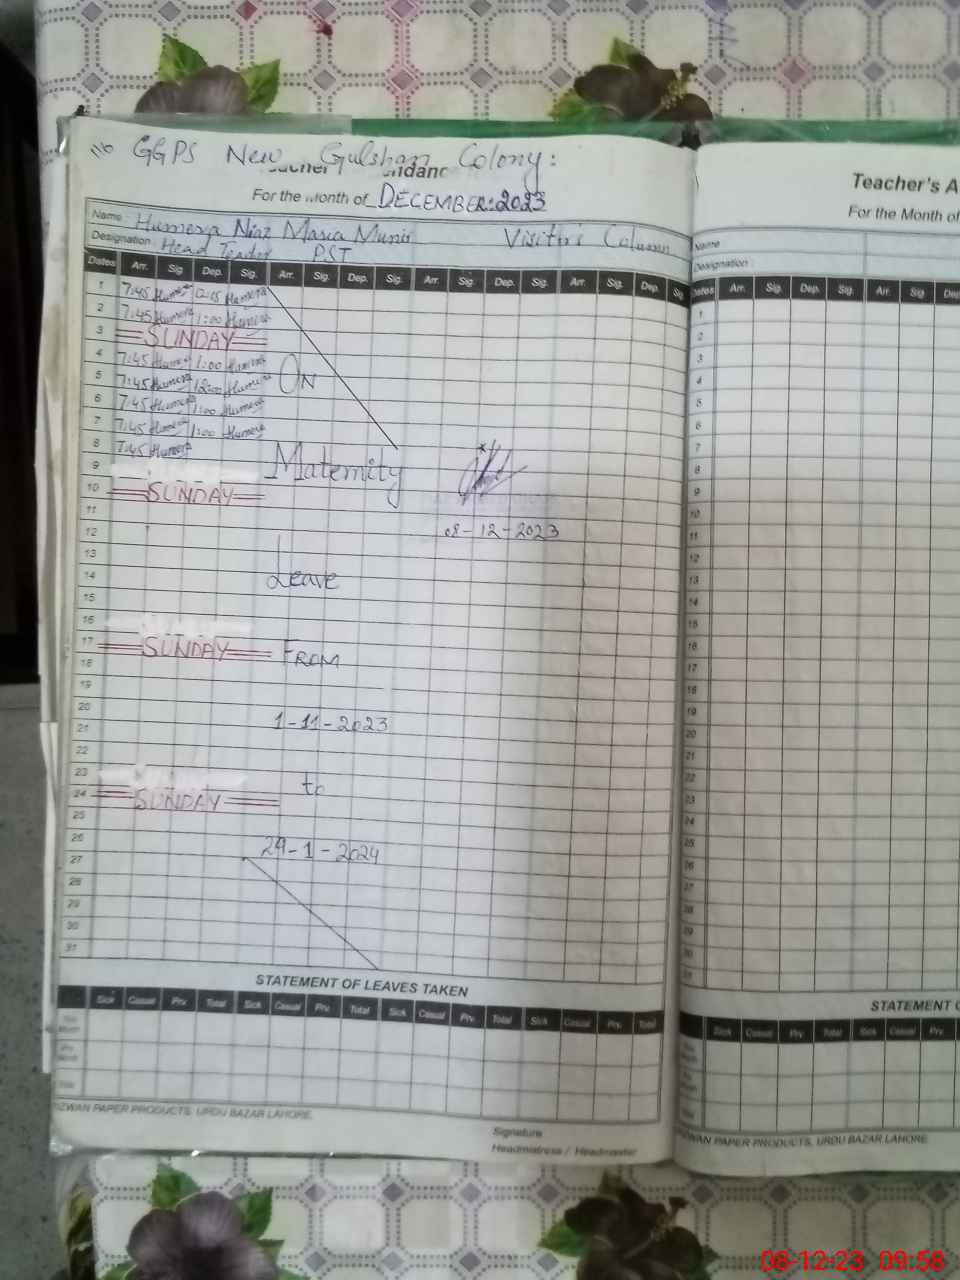 GGPS New Gulshan Colony:
For the Month of DECEMBER:2023
Name : Humera Niaz Maria Munir Visitri's Column
Designation : Head Teacher PST
Dates Arr. Sig. Dep. Sig. Arr. Sig. Dep. Sig. Arr. Sig. Dep. Sig. Arr. Sig. Dep. Sig.
1 7:45 Humera 12:15 Humera
2 7:45 Humera 1:00 Humera
3 SUNDAY
4 7:45 Humera 1:00 Humera
5 7:45 Humera 12:00 Humera ON
6 7:45 Humera 1:00 Humera
7 7:45 Humera 1:00 Humera
8 7:45 Humera
9 Maternity
10 SUNDAY
11
12 08-12-2023
13
14 Leave
15
16
17 SUNDAY
18 FROM
19
20
21 1-11-2023
22
23
24 SUNDAY to
25
26
27 29-1-2024
28
29
30
31
STATEMENT OF LEAVES TAKEN
Sick Casual Prv. Total Sick Casual Prv. Total Sick Casual Prv. Total Sick Casual Prv. Total
PAPER PRODUCTS, URDU BAZAR LAHORE.
Signature
Headmistress / Headmaster
Teacher's A
For the Month of
Name
Designation :
Dates Arr. Sig. Dep. Sig. Arr. Sig.
1
2
3
4
5
6
7
8
9
10
11
12
13
14
15
16
17
18
19
20
21
22
23
24
25
26
27
28
29
30
31
STATEMENT
Sick Casual Prv. Total Sick Casual Prv.
PAPER PRODUCTS, URDU BAZAR LAHORE
08-12-23 09:58